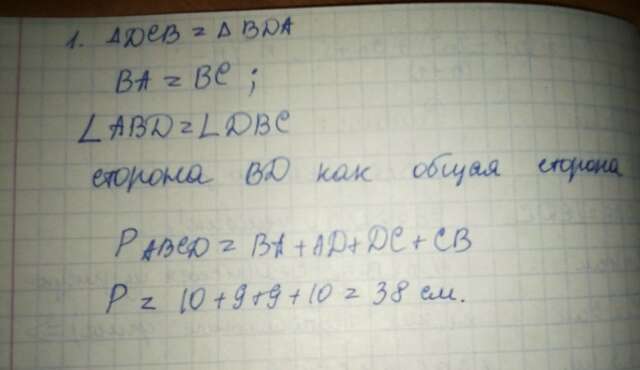 1. ΔDCB = ΔBDA
BA = BC ;
∠ABD = ∠DBC
сторона BD как общая сторона
P ABCD = BA + AD + DC + CB
P = 10 + 9 + 9 + 10 = 38 см.